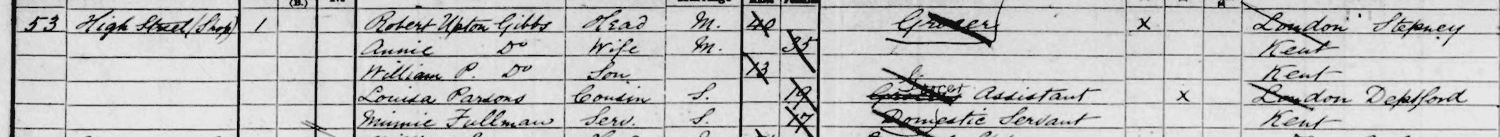 53 High Street (Shop) 1 Robert Upton Gibbs Head M. 40 Grocer X London Stepney
Annie Do Wife M. 35 Kent
William P. Do Son 13 Kent
Louisa Parsons Cousin S. 19 Grocer Assistant X London Deptford
Minnie Fullman Serv. S. 17 Domestic Servant Kent